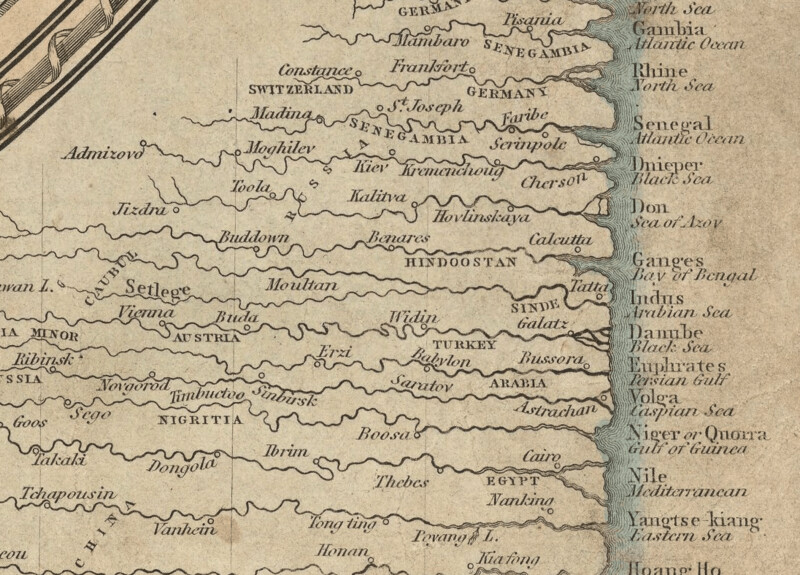 GERMAN
North Sea
Pisania
Gambia
Mambaro
SENEGAMBIA
Atlantic Ocean
Constance
Frankfort
Rhine
SWITZERLAND
GERMANY
North Sea
Madina
St. Joseph
Faribe
Senegal
SENEGAMBIA
Serinpole
Atlantic Ocean
Admizovo
Moghilev
RUSSIA
Kiev
Kremenchoug
Cherson
Dnieper
Black Sea
Jizdra
Toola
Kalitva
Hovlinskaya
Don
Sea of Azov
Buddown
Benares
Calcutta
HINDOOSTAN
Ganges
Bay of Bengal
CAUBUL
wan L.
Setlege
Moultan
Tatta
SINDE
Indus
Arabian Sea
Vienna
Buda
Widin
Galatz
Danube
IA MINOR
AUSTRIA
TURKEY
Black Sea
Erzi
Babylon
Bussora
Euphrates
Persian Gulf
Ribinsk
SSIA
Novgorod
Sinbirsk
Saratov
ARABIA
Astrachan
Volga
Caspian Sea
Goos
Sego
Timbuctoo
NIGRITIA
Boosa
Niger or Quorra
Gulf of Guinea
Takaki
Dongola
Ibrim
Thebes
Cairo
EGYPT
Nile
Mediterranean
Tchapousin
CHINA
Vanhein
Tong ting
Poyang L.
Nanking
Yangtse-kiang
Eastern Sea
Honan
Kiafong
Hoang Ho